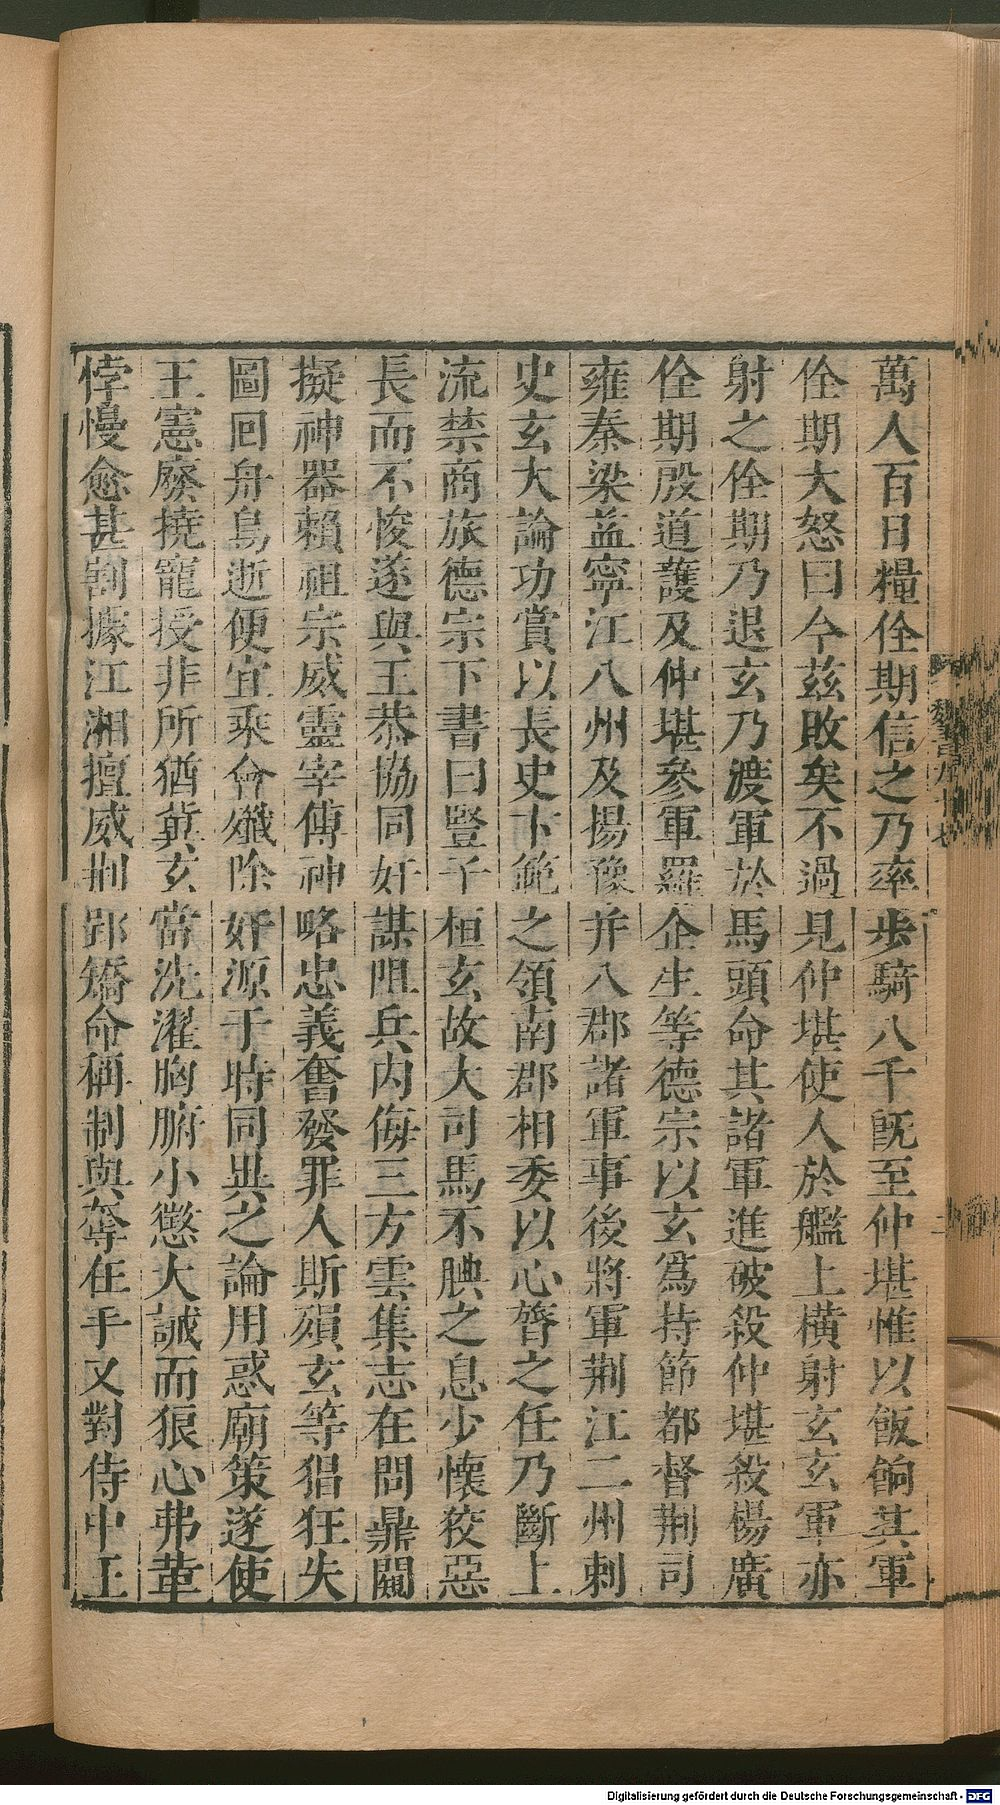 萬人百日糧佺期信之乃率步騎八千旣至仲堪惟以飯餉其軍
佺期大怒曰今茲敗矣不過見仲堪使人於艦上橫射玄玄軍亦
射之佺期乃退玄乃渡軍於馬頭命其諸軍進破殺仲堪殺楊廣
佺期殷道護及仲堪參軍羅企生等德宗以玄爲持節都督荆司
雍秦梁益寧江八州及揚豫并八郡諸軍事後將軍荆江二州刺
史玄大論功賞以長史卞範之領南郡相委以心膂之任乃斷上
流禁商旅德宗下書曰豎子桓玄故大司馬不腆之息少懷狡惡
長而不悛遂與王恭協同奸謀阻兵內侮三方雲集志在問鼎闚
擬神器賴祖宗威靈宰傅神略忠義奮發罪人斯殞玄等猖狂失
圖回舟鳥逝便宜乘會殲除奸源于時同異之論用惑廟策遂使
王憲廢撓寵授非所猶冀玄當洗濯胸腑小懲大誡而狼心弗革
悖慢愈甚割據江湘擅威荆郢矯命稱制與奪任手又對侍中王
魏書九十七
Digitalisierung gefördert durch die Deutsche Forschungsgemeinschaft - DFG